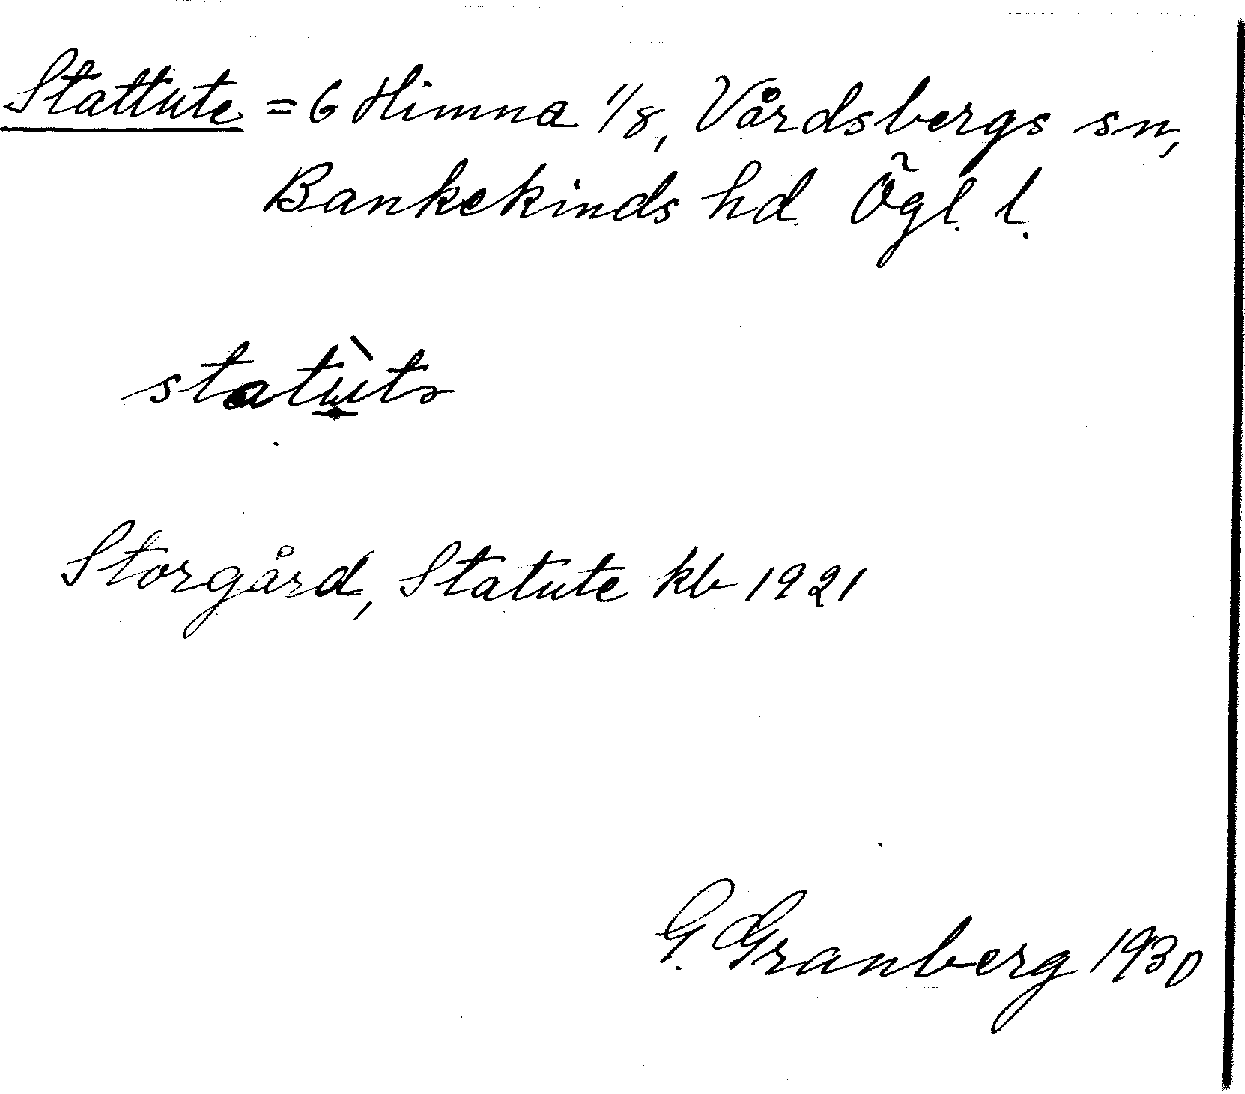 Stattute = 6 Himna 1/8, Vårdsbergs sn,
Bankekinds hd. Ögl. l.
Storgård, Statute kb 1921
G. Granberg 1930